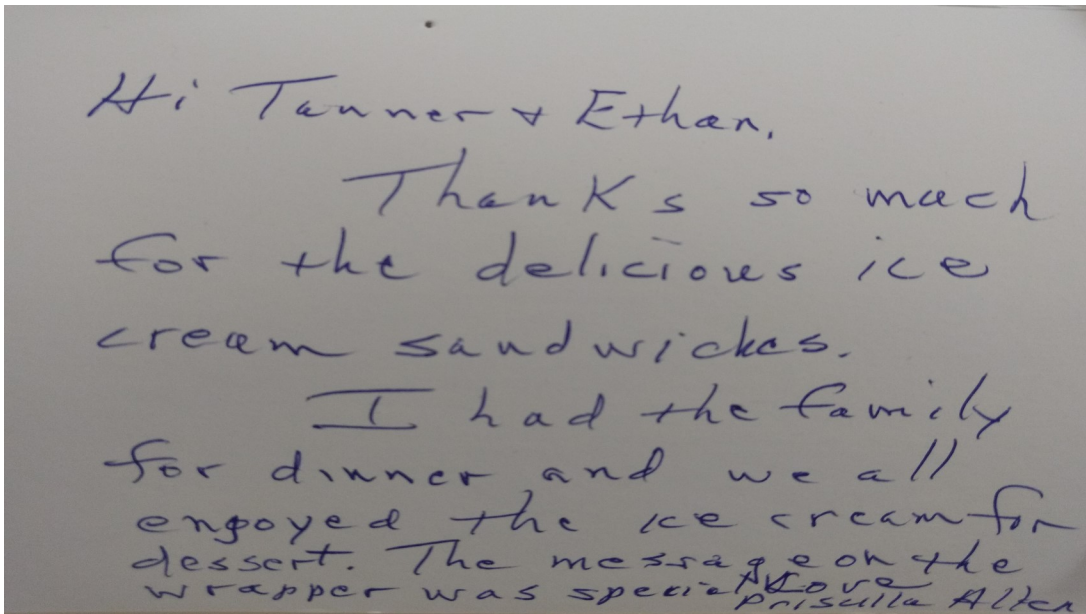 Hi Tanner + Ethan,
Thanks so much
for the delicious ice
cream sandwiches.
I had the family
for dinner and we all
enjoyed the ice cream for
dessert. The message on the
wrapper was special. Love
Priscilla Allen